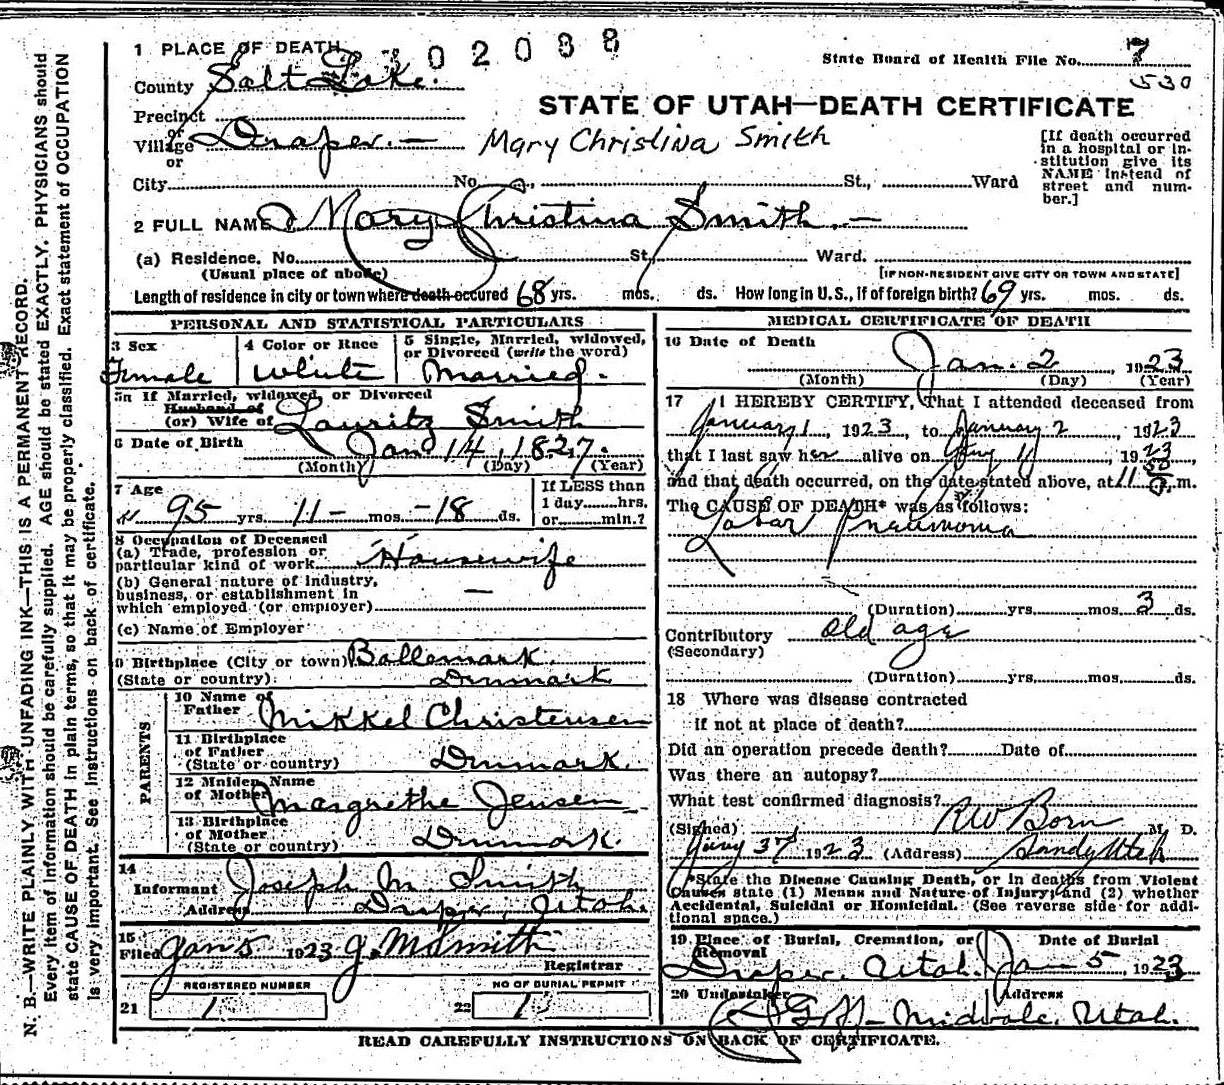 1 PLACE OF DEATH
302088
State Board of Health File No. 7
530
County Salt Lake.
STATE OF UTAH—DEATH CERTIFICATE
Precinct
or
Village Draper.—
Mary Christina Smith
[If death occurred in a hospital or in-
stitution give its NAME instead of street and num-
ber.]
or
City No. St., Ward
2 FULL NAME Mary Christina Smith.—
(a) Residence. No. St. Ward.
(Usual place of abode)
[IF NON-RESIDENT GIVE CITY OR TOWN AND STATE]
Length of residence in city or town where death occured 68 yrs. mos. ds. How long in U.S., if of foreign birth? 69 yrs. mos. ds.
PERSONAL AND STATISTICAL PARTICULARS
3 Sex
Female
4 Color or Race
White
5 Single, Married, widowed,
or Divorced (write the word)
Married.
5a If Married, widowed, or Divorced
Husband of
(or) Wife of Lauritz Smith
6 Date of Birth Jan 14, 1827.
(Month) (Day) (Year)
7 Age
95 yrs. 11- mos. -18 ds.
If LESS than
1 day hrs.
or min.?
8 Occupation of Deceased
(a) Trade, profession or
particular kind of work Housewife
(b) General nature of industry,
business, or establishment in
which employed (or employer) —
(c) Name of Employer
9 Birthplace (City or town) Ballemark.
(State or country) Denmark
PARENTS
10 Name of
Father Mikkel Christensen
11 Birthplace
of Father
(State or country) Denmark.
12 Maiden Name
of Mother Margrethe Jensen
13 Birthplace
of Mother
(State or country) Denmark.
14
Informant Joseph M. Smith
Address Draper, Utah.
15
Filed Jan 5 1923 J. M. Smith
Registrar
REGISTERED NUMBER
21 1
NO OF BURIAL PERMIT
22 1
MEDICAL CERTIFICATE OF DEATH
16 Date of Death
Jan. 2, 1923
(Month) (Day) (Year)
17 I HEREBY CERTIFY, That I attended deceased from
January 1, 1923, to January 2 1923
that I last saw her alive on 1923,
and that death occurred, on the date stated above, at 11 50 m.
The CAUSE OF DEATH* was as follows:
Lobar Pneumonia
(Duration) yrs. mos. 3 ds.
Contributory old age
(Secondary)
(Duration) yrs. mos. ds.
18 Where was disease contracted
if not at place of death?
Did an operation precede death? Date of
Was there an autopsy?
What test confirmed diagnosis?
(Signed) RW Born M. D.
1923 (Address) Sandy Utah
*State the Disease Causing Death, or in deaths from Violent
Causes state (1) Means and Nature of Injury; and (2) whether
Accidental, Suicidal or Homicidal. (See reverse side for addi-
tional space.)
19 Place of Burial, Cremation, or
Removal
Draper, Utah.
Date of Burial
Jan 5, 1923
20 Undertaker Address
Midvale, Utah.
READ CAREFULLY INSTRUCTIONS ON BACK OF CERTIFICATE.
N. B.—WRITE PLAINLY WITH UNFADING INK—THIS IS A PERMANENT RECORD.
Every item of information should be carefully supplied. AGE should be stated EXACTLY. PHYSICIANS should
state CAUSE OF DEATH in plain terms, so that it may be properly classified. Exact statement of OCCUPATION
is very important. See instructions on back of certificate.